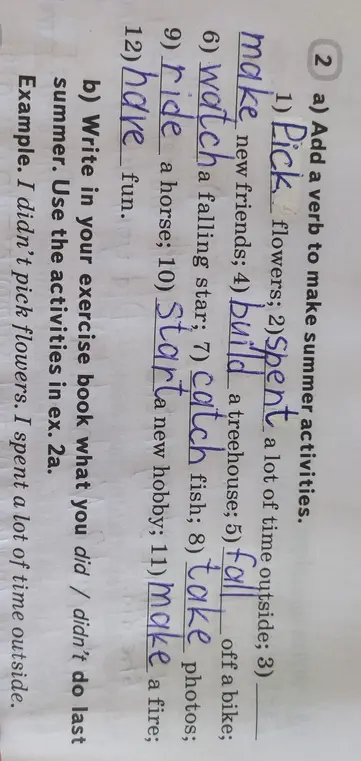 2 a) Add a verb to make summer activities.
1) Pick flowers; 2) spent a lot of time outside; 3) ____
make new friends; 4) build a treehouse; 5) fall off a bike;
6) watch a falling star; 7) catch fish; 8) take photos;
9) ride a horse; 10) start a new hobby; 11) make a fire;
12) have fun.
b) Write in your exercise book what you did / didn't do last
summer. Use the activities in ex. 2a.
Example. I didn't pick flowers. I spent a lot of time outside.